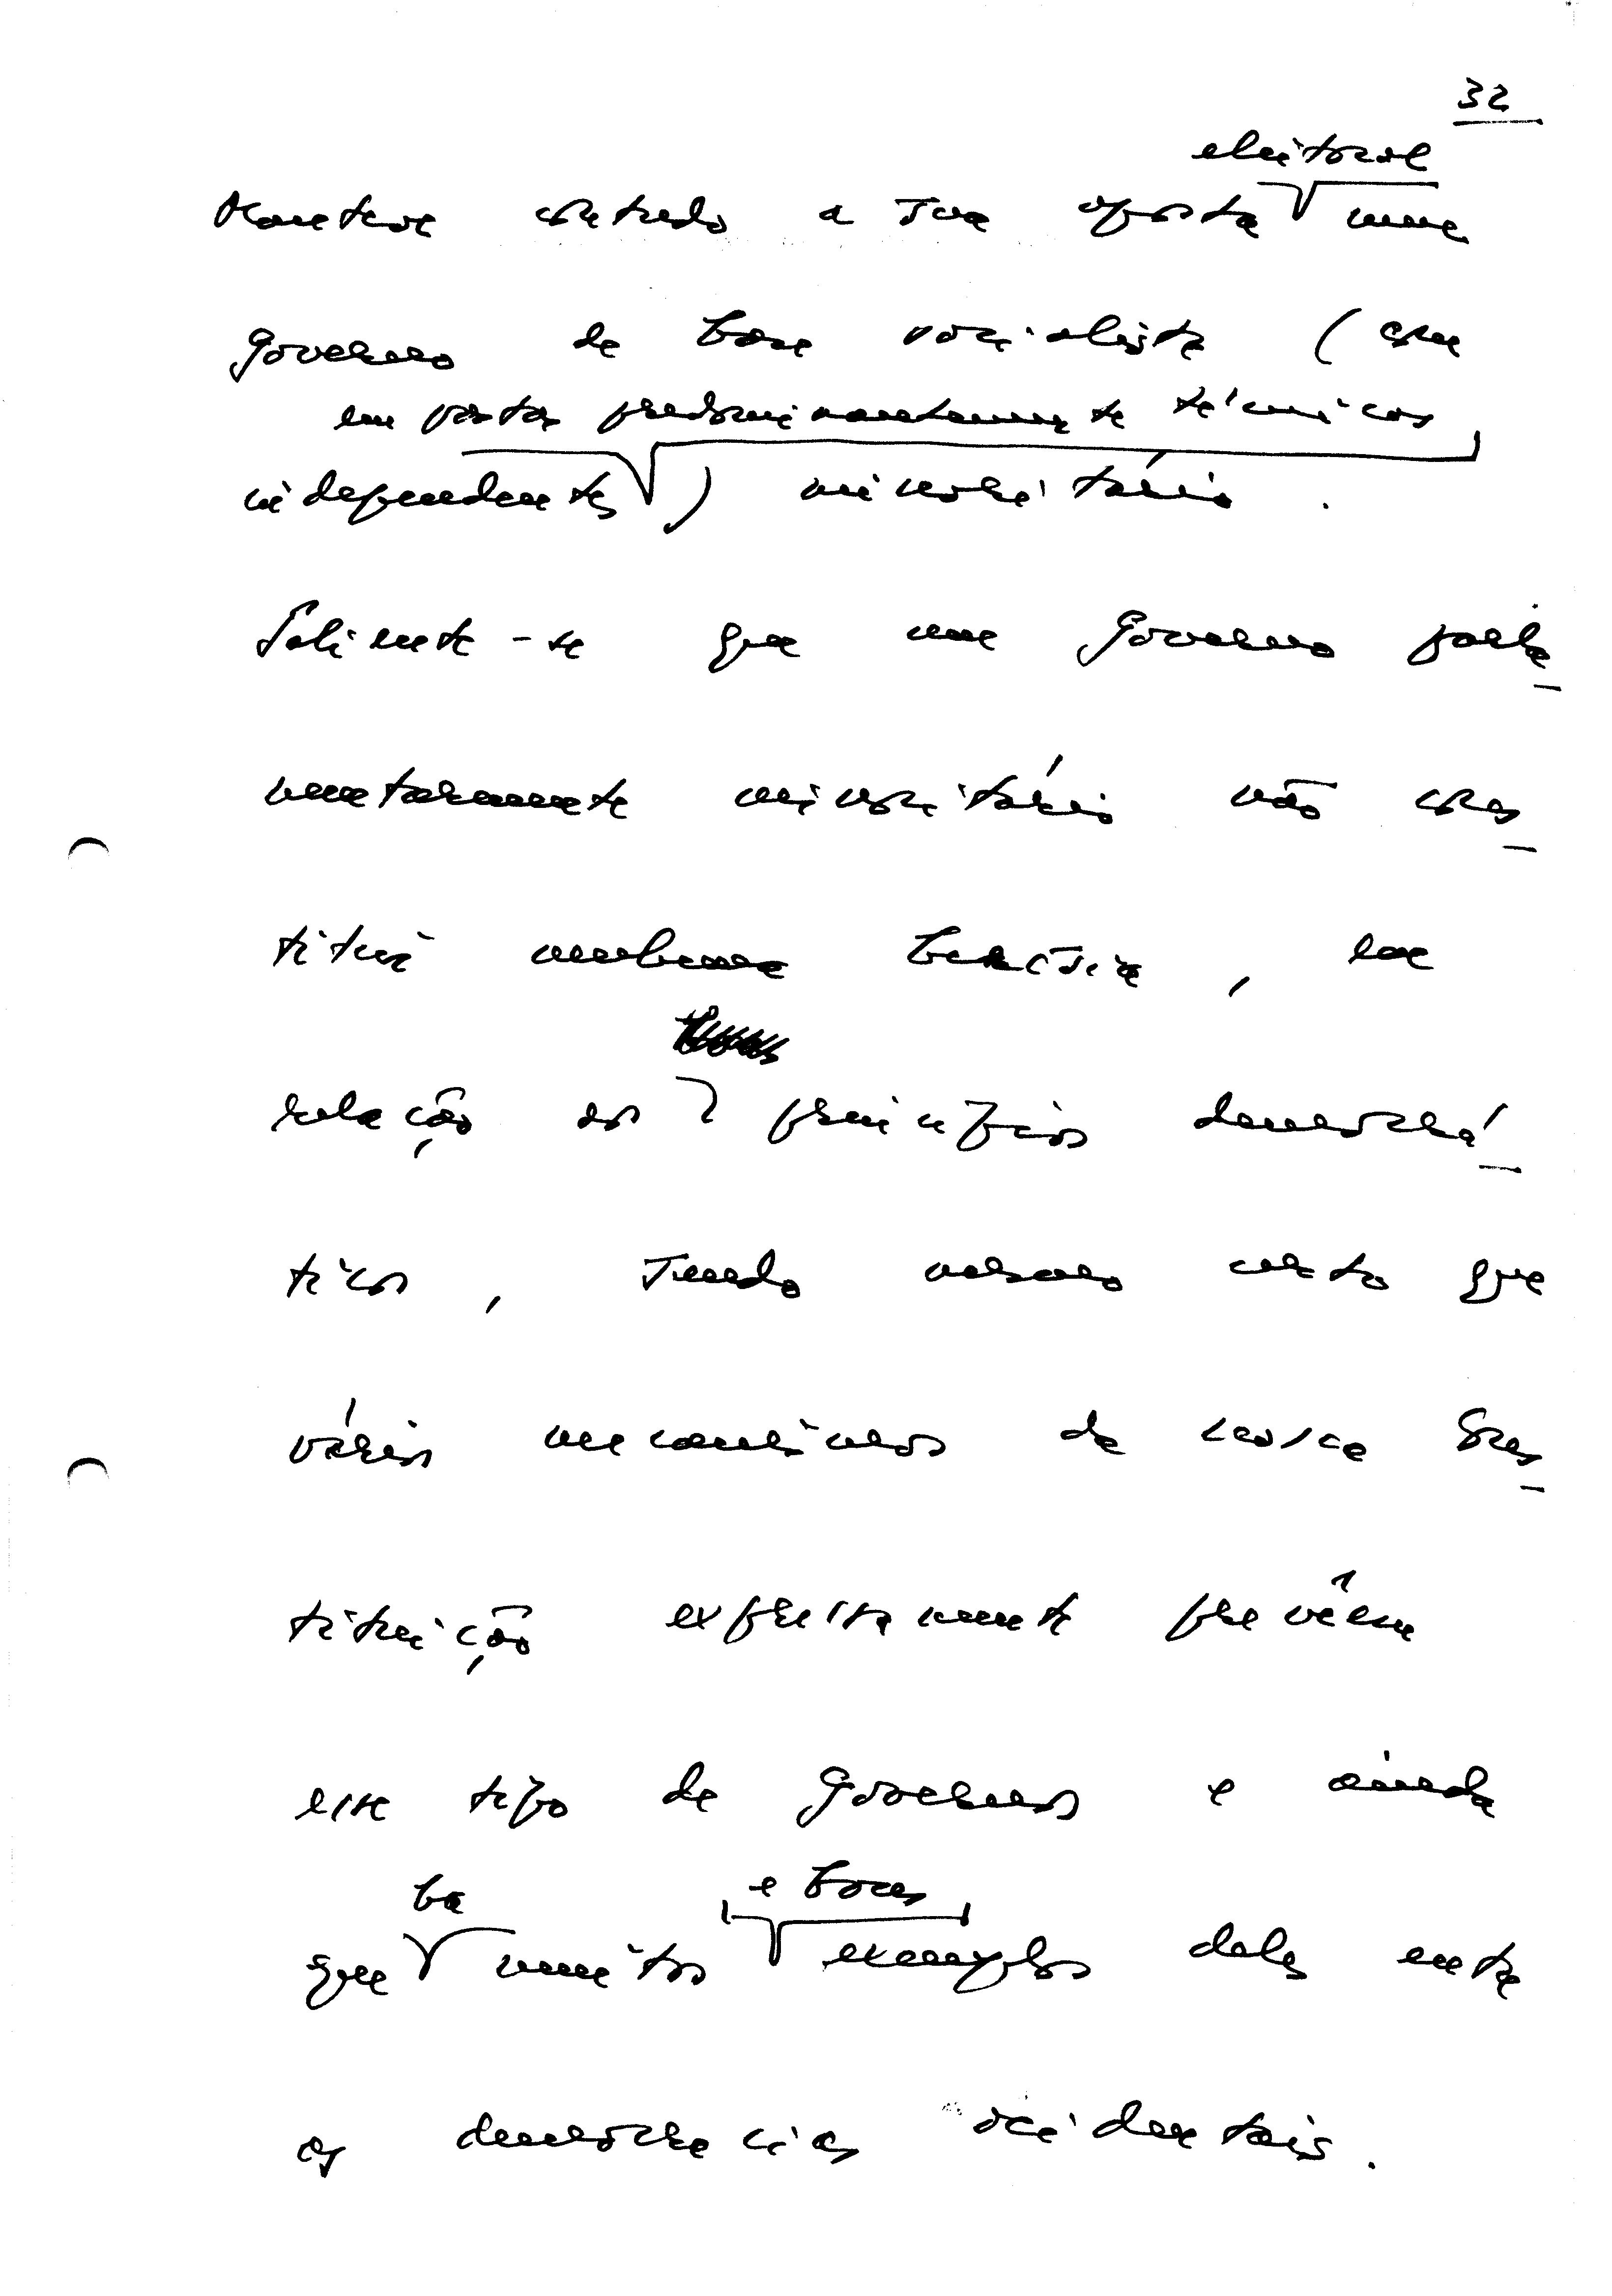 32
eleitoral
Manteve contudo a sua aposta num
Governo de base socialista (com
em pastas predominantemente técnicas
independentes) minoritário.
Saliente-se que um Governo parla
mentarmente minoritário não cons
titui nenhuma heresia, em
relação aos princípios democrá
ticos, sendo mesmo certo que
vários mecanismos da nossa Cons
tituição expressamente prevêem
esse tipo de Governos e ainda
ha
e bons
que muitos exemplos deles entre
as democracias ocidentais.